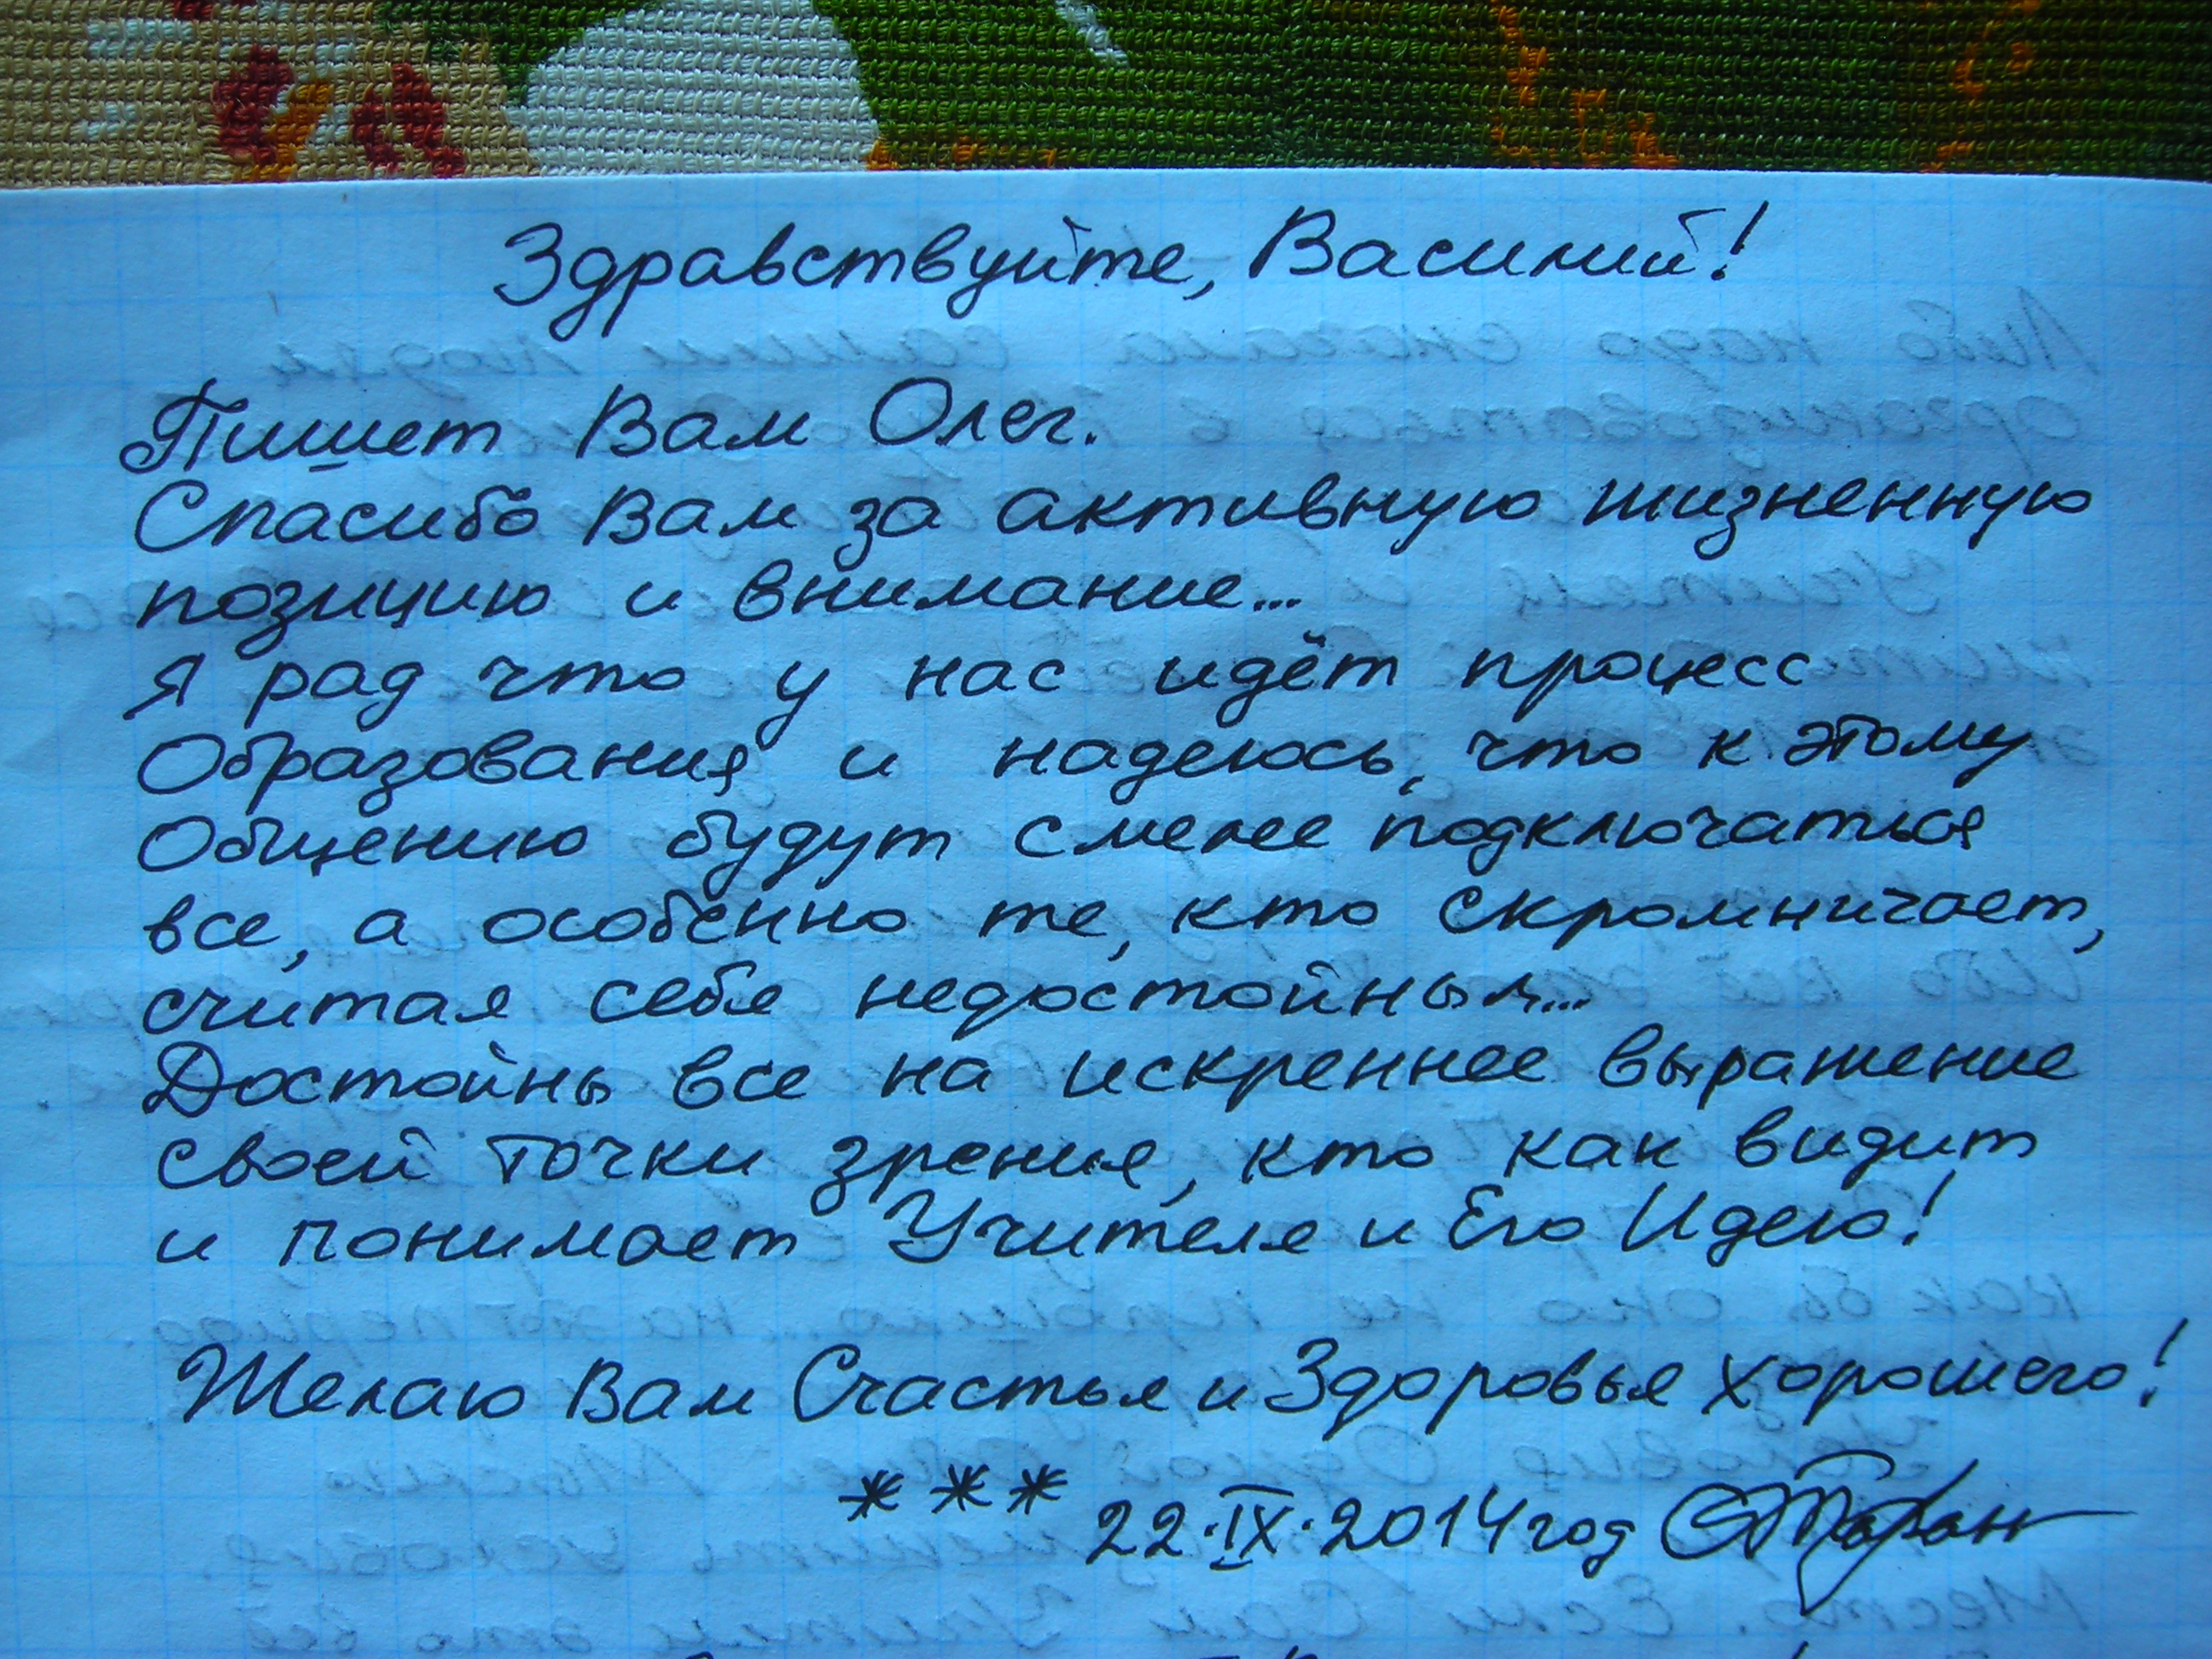 Здравствуйте, Василий!
Пишет Вам Олег.
Спасибо Вам за активную жизненную
позицию и внимание...
Я рад что у нас идёт процесс
Образования и надеюсь, что к этому
Общению будут смелее подключаться
все, а особенно те, кто скромничает,
считая себя недостойным...
Достойны все на искреннее выражение
своей точки зрения, кто как видит
и понимает Учителя и Его Идею!
Желаю Вам Счастья и Здоровья хорошего!
* * * 22·IX·2014 год